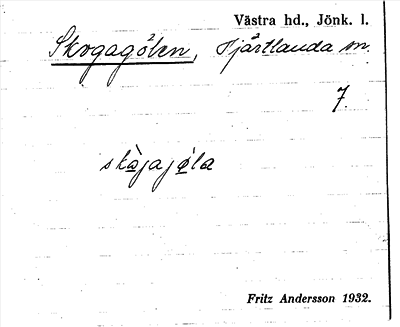 Västra hd., Jönk. l.
Skogagölen, Hjärtlanda sn.
7.
skòɡajǿla
Fritz Andersson 1932.